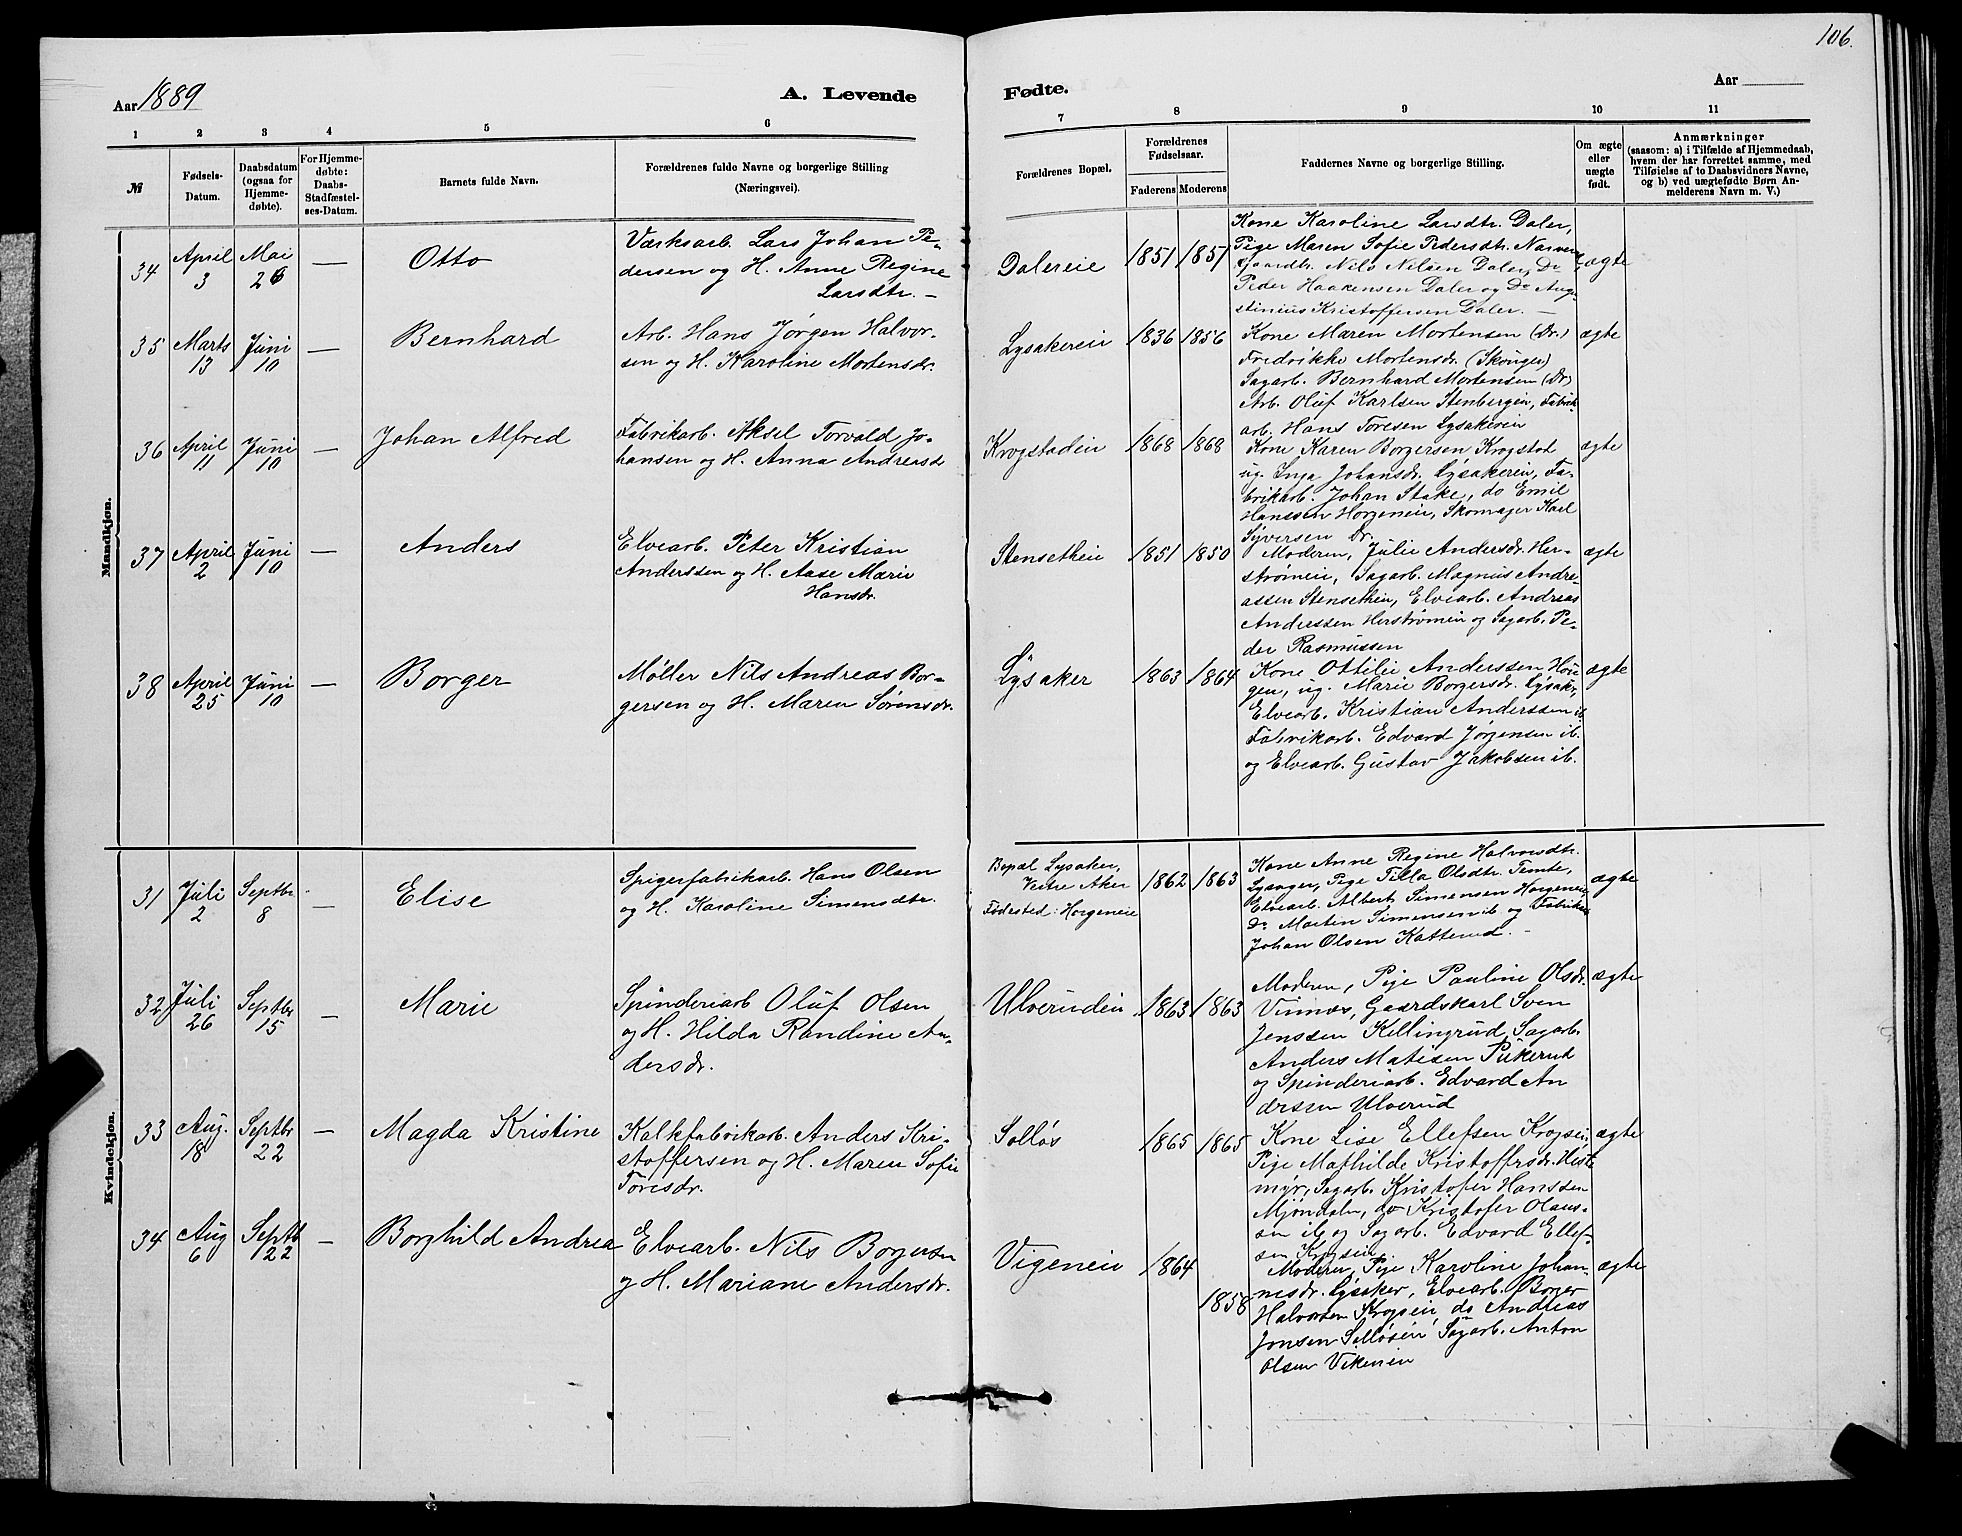 106.
Aar 1889
A. Levende
Fødte.
Aar
1 2 3 4 5 6
7 8 9 10 11
№
Fødsels-
Datum.
Daabsdatum
(ogsaa for
Hjemme-
døbte).
For Hjemme-
døbte:
Daabs-
Stadfæstel-
ses-Datum.
Barnets fulde Navn.
Forældrenes fulde Navne og borgerlige Stilling
(Næringsvei).
Forældrenes Bopæl.
Forældrenes
Fødselsaar.
Faderens Moderens
Faddernes Navne og borgerlige Stilling.
Om ægte
eller
uægte
født.
Anmærkninger
(saasom: a) i Tilfælde af Hjemmedaab,
hvem der har forrettet samme, med
Tilføielse af to Daabsvidners Navne,
og b) ved uægtefødte Børn An-
melderens Navn m. V.)
Mandkjøn.
34
April
3
Mai
26
—
Otto
Værksarb. Lars Johan Pe-
dersen og H. Anne Regine
Larsdtr. —
Dalereie
1851 1851
Kone Karoline Larsdtr. Daler,
Pige Maren Sofie Pedersdtr. Narveru
Gaardbr. Nils Nilsen Daler, Do
Peder Haakensen Daler og Do Augu-
stinius Kristoffersen Daler. —
ægte
35
Marts
13
Juni
10
—
Bernhard
Arb. Hans Jørgen Halvor-
sen og H. Karoline Mortensdr.
Lysakereii
1836 1856
Kone Maren Mortensen (Dr.)
Fredrikke Mortensdr. (Skouger)
Sagarb. Bernhard Mortensen (Dr)
Arb. Oluf Karlsen Stenbergeie, Fabrik-
arb. Hans Toresen Lysakereie
ægte
36
April
11
Juni
10
—
Johan Alfred
Fabrikarb. Aksel Torvald Jo-
hansen og H. Anna Andreasdr
Krogstadeie
1868 1868
Kone Karen Borgersen Krogstad
ug. Inga Johansdr. Lysakereie, Fa-
brikarb. Johan Stake, do Emil
Hanssen Horgeneie, Skomager Karl
Syversen Dr.
ægte
37
April
2
Juni
10
—
Anders
Elvearb. Peter Kristian
Anderssen og H. Aase Marie
Hansdr.
Stensetheie
1851 1850
Moderen, Julie Andersdr. Her-
strømeie, Sagarb. Magnus Andre-
assen Stensetheie, Elvearb. Andreas
Anderssen Herstrømeie og Sagarb. Pe-
der Rasmussen
ægte
38
April
25
Juni
10
—
Borger
Møller Nils Andreas Bor-
gersen og H. Maren Sørensdr.
Lysaker
1863 1864
Kone Ottilie Anderssen Hou-
gen, ug. Marie Borgersdr. Lysaker,
Elvearb. Kristian Anderssen ib
Fabrikarb. Edvard Jørgensen ib.
og Elvearb. Gustav Jakobsen ib.
ægte
Kvindekjøn.
31
Juli
2
Septbr
8
Elise
Spigerfabrikarb. Hans Olsen
og H. Karoline Simensdtr.
Bopæl Lysaker,
Vestre Aker
Fødested: Horgeneie
1862 1863
Kone Anne Regine Halvorsdtr.
Pige Tilla Olsdtr. Temte,
Elvearb. Albert Simensen Horgeneie,
Do Martin Simensen ib og Fabrikarb
Johan Olsen Katterud. —
ægte
32
Juli
26
Septbr
15
—
Marie
Spinderiarb Oluf Olsen
og H. Hilda Randine An-
dersdr.
Ulverudeie
1863 1863
Moderen, Pige Pauline Olsdr.
Vinnes, Gaardskarl Sven
Jenssen Killingrud, Sagarb.
Anders Matisen Pukerud
og Spinderiarb. Edvard An
dersen Ulverud
ægte
33
Aug.
18
Septbr
22
—
Magda Kristine
Kalkfabrikarb. Anders Kri-
stoffersen og H. Maren Sofie
Toresdr.
Solløs
1865 1865
Kone Lise Ellefsen Kropeie,
Pige Mathilde Kristoffersdr. Heste
myr, Sagarb. Kristofer Hanssen
Mjøndalen, do Kristofer Olaus-
sen ib og Sagarb. Edvard Ellef-
sen Kropeie
ægte
34
Aug
6
Septb
22
—
Borghild Andrea
Elvearb. Nils Borgersen
og H. Mariane Andersdr.
Vigeneie
1864
1858
Moderen, Pige Karoline Johan-
nesdr. Lysaker, Elvearb. Borger
Halvorsen Kropeie, do Andreas
Jonsen Solløseie, Sagarb. Anton
Olsen Vikeneie
ægte